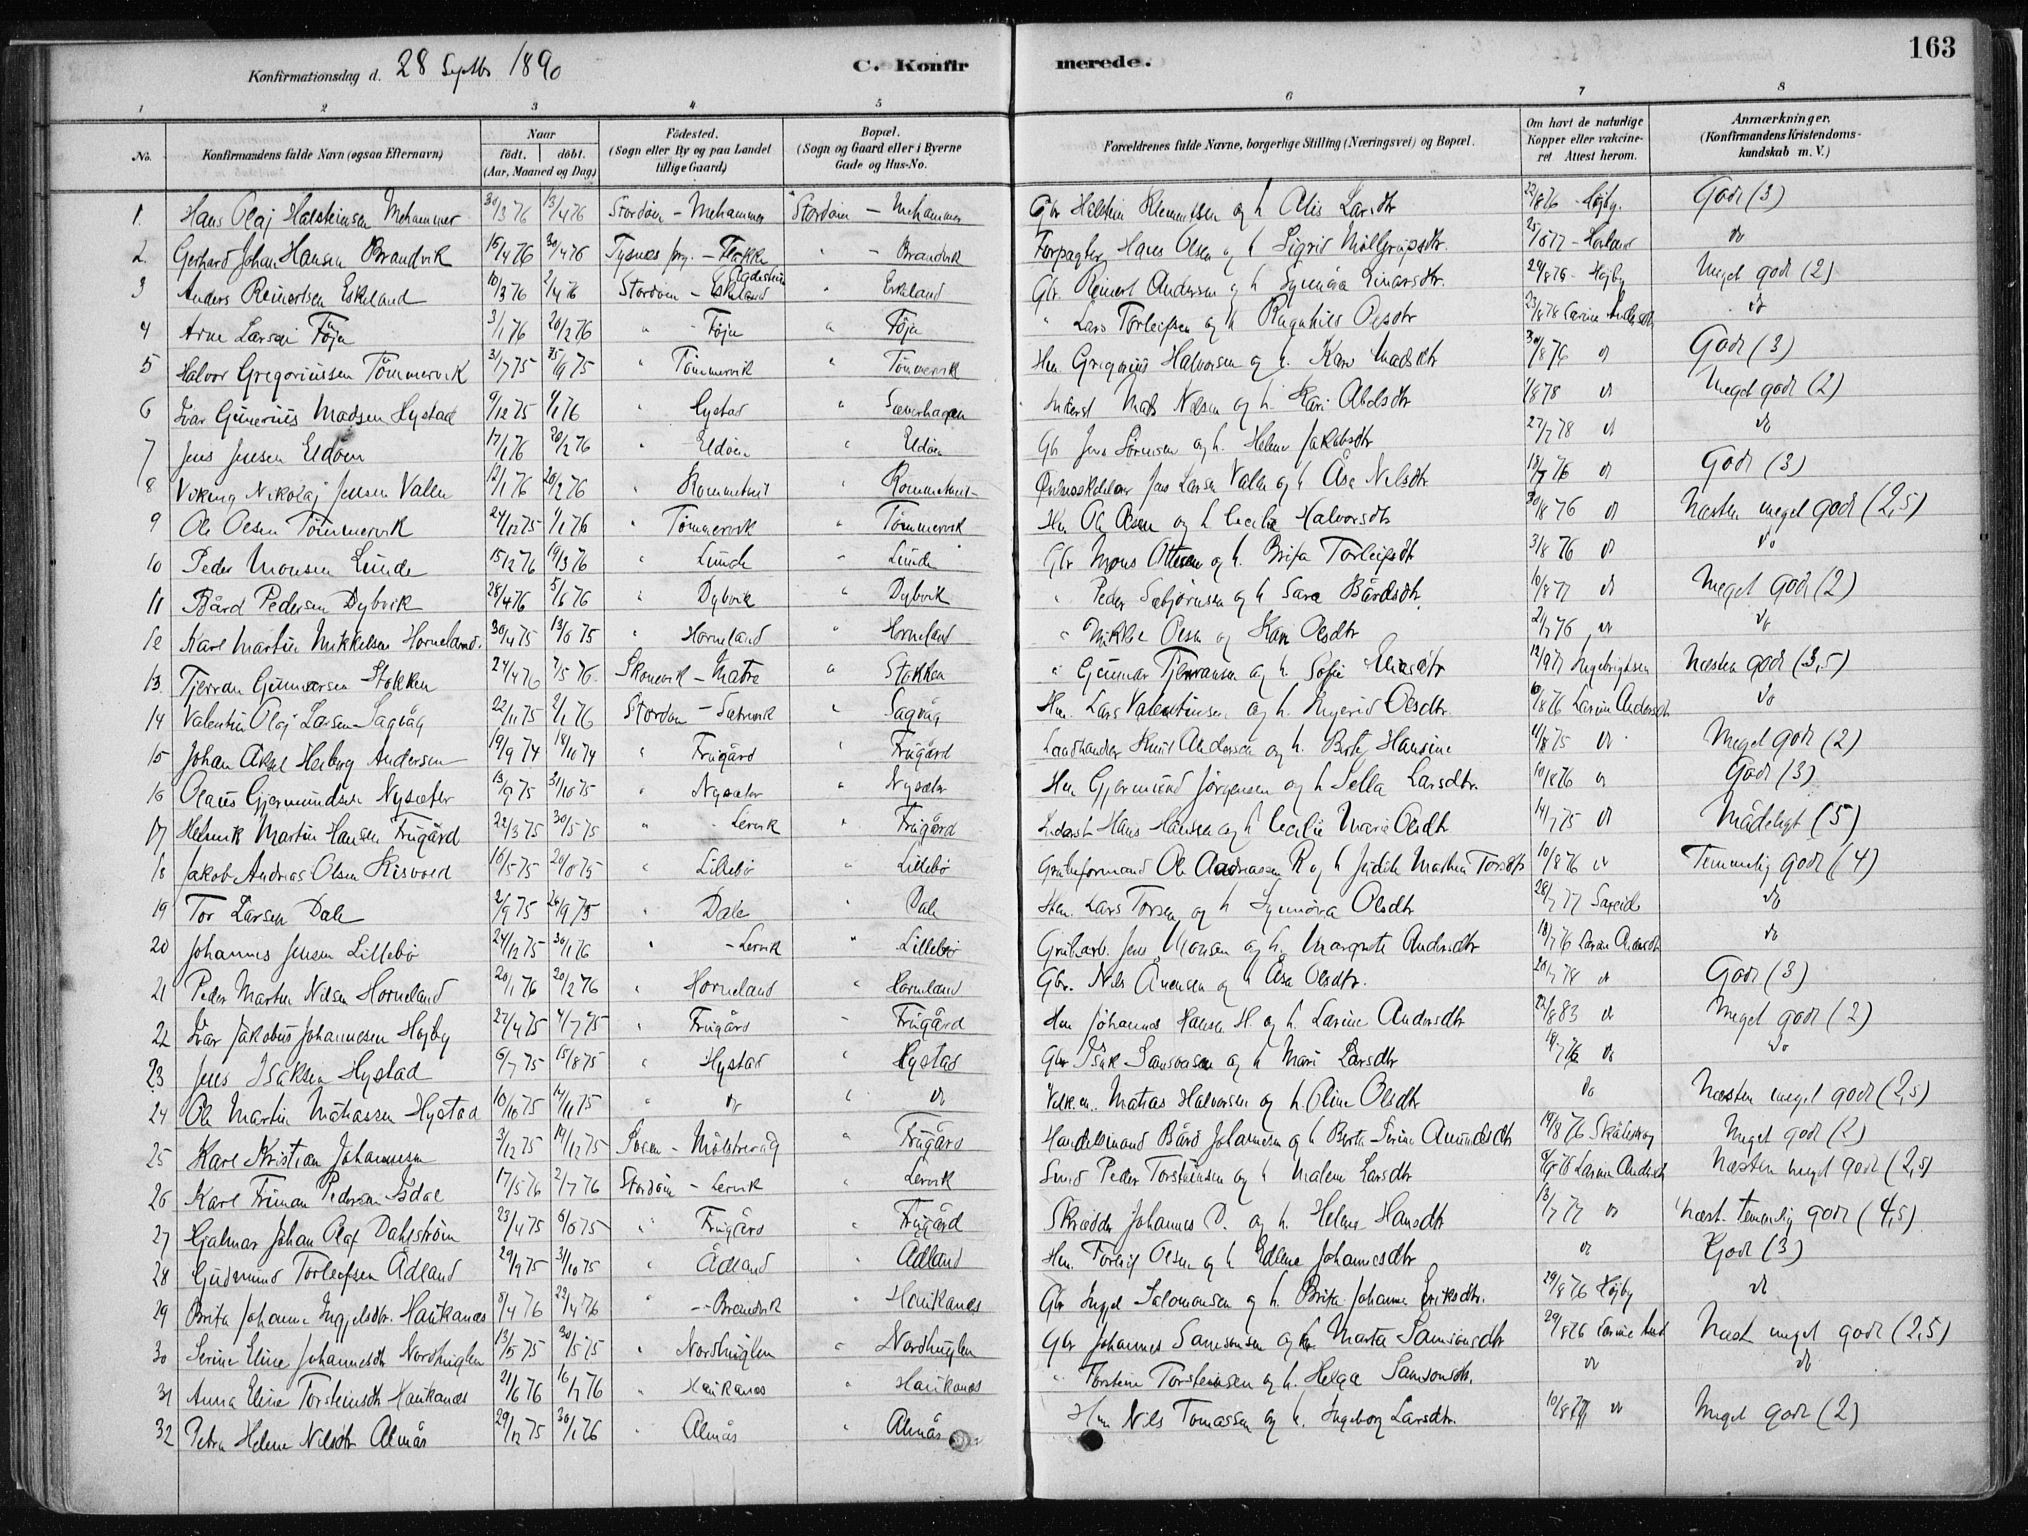 163
Konfirmationsdag d. 28 Septbr 1890 C. Konfirmerede.
1 2 3 4 5 6 7 8
No. Konfirmandens fulde Navn (ogsaa Efternavn) Naar født. døbt. (Aar, Maaned og Dag) Fødested. (Sogn eller By og paa Landet tillige Gaard) Bopæl. (Sogn og Gaard eller i Byerne Gade og Hus-No. Forældrenes fulde Navne, borgerlige Stilling (Næringsvei) og Bopæl. Om havt de naturlige Kopper eller vakcineret. Attest herom. Anmærkninger. (Konfirmandens Kristendomskundskab m. V.)
1. Hans Olaj Halsteinsen Mehammer 30/3 76 13/4 76 Stordøen - Mehammer Stordøen - Mehammer Gbr Halstein Klemmetsen og h. Alis Larsdtr 22/8 76 Højby. Godt (3)
2. Gerhard Johan Hansen Brandvik 15/4 76 30/4 76 Tysnes prg. - Flakke " - Brandvik Forpagter Hans Olsen og h Sigrid Møllgrupsdtr. do
3 Anders Reinertsen Eskeland 10/3 76 2/4 76 Stordøen - Eskeland " Eskeland Gbr. Reinert Andersen og h Synnøva Einarsdtr. 29/8 76 - Højby Meget godt (2)
4 Arne Larsen Føjn 3/1 76 20/2 76 " - Føjn " Føjn " Lars Torleifsen og h Ragnhild Olsdtr 23/8 78 Larine Andersdtr do
5 Halvor Gregoriussen Tømmervik 31/7 75 " Tømmervik " Tømmervik Hm. Gregorius Halvorsen og h. Kari Madsdtr 30/8 76 do Godt (3)
6 Ivar Gunerius Madsen Hystad 9/12 75 1/1 76 " Hystad " Sæverhagen Inderst Mads Nilsen og h. Kari Abelsdtr do Meget godt (2)
7 Jens Jensen Eldøen 17/1 76 20/2 76 " Eldøen " Eldøen Gbr Jens Sørensen og h. Helene Jakobsdtr 27/7 78 do do
8 Viking Nikolaj Jensen Valen 12/1 76 20/2 76 " Rommetveit " Rommetveit Jens Larsen Valen og h Åsa Nilsdtr do Godt (3)
9 Ole Olsen Tømmervik 24/12 75 1/1 76 " Tømmervik " Tømmervik Hm Ole Olsen og h Cecilie Halvorsdtr 30/8 76 do Næsten meget godt (2,5)
10 Peder Monsen Lunde 15/12 76 19/3 76 " Lunde " Lunde Gbr Mons Ottesen og h. Brita Torleifsdtr 3/8 76 do do
11 Bård Pedersen Dybvik 28/4 76 5/6 76 " Dybvik " Dybvik " Peder Sæbjørnsen og h Sara Bårdsdtr. 10/8 77 do Meget godt (2)
12 Karl Martin Mikkelsen Horneland. 30/4 75 13/6 75 " Horneland " Horneland " Mikkel Olsen og Kari Olsdtr 21/7 76 do do
13. Tjerran Gunnarsen Stokken 24/4 76 7/5 76. Skonevik - Matre " Stokken " Gunnar Tjerransen og h. Sofie 12/9 77 Ingebrigtsen Næsten godt (3,5)
14 Valentin Olaj Larsen Sagvåg 22/11 75 2/1 76 Stordøen - Sætrevik " Sagvåg Hm. Lars Valentinsen og h. Ingerid Olsdtr. 10/8 76 Larine Andersdtr do
15 Johan Aksel Heiberg Andersen 19/9 74 18/10 74 " Frugård " Frugård Landhandler Knut Andersen og h. Berty Hansine do Meget godt (2)
16 Olaus Gjermundsen Nysæter 13/9 75 31/10 75 " Nysæter " Nysæter Hm Gjermund Jørgensen og h Sella Larsdtr. 10/8 76 do Godt (3)
17 Helmik Martin Hansen Frugård 22/3 75 30/5 75 " Lervik " Frugård Inderst Hans Hansen og h Cecilie Marie Olsdtr 14/7 75 do Mådeligt (5)
18 Jakob Andreas Olsen Risvold 16/5 75 20/6 75 " Lillebø " Lillebø Grubeformand Ole Andreassen R og h Judith Mathea Torsdtr 10/8 76 do Temmelig godt (4)
19 Tor Larsen Dale 2/9 75 26/9 75 " Dale " Dale Hm. Lars Torsen og h Synnøva Olsdtr 28/7 77 do
20 Johannes Jensen Lillebø 24/12 75 30/1 76 " - Lervik " Lillebø Grubearb. Jens Monsen og h. Margrete Andersdtr 18/7 76 Larine Andersdtr do
21 Peder Martin Nilsen Horneland 20/1 76 20/2 76 " Horneland " Horneland Gbr. Nils Ånensen og h Åsa Olsdtr. 20/7 78 do Godt (3)
22 Ivar Jakobus Johannesen Højby 27/4 75 4/7 75 " Frugård " Frugård Hm Johannes Hansen H. og h. Larine Andersdtr 22/8 83 do Meget godt (2)
23 Jens Isaksen Hystad 6/7 75 15/8 75 " Hystad " Hystad Gbr Isak Samsonsen og h Mari Larsdtr 19/7 76 do do
24 Ole Martin Matiassen Hystad 10/10 75 14/11 75 " do " do Matias Halvorsen og h. Oline Olsdtr do Næsten meget godt (2,5)
25 Karl Kristian Johannesen 3/12 75 19/12 75 Sveen - Mølstrevåg " Frugård Handelsmand Bård Johannesen og h Berta Serine Amundsdtr 19/8 76 Meget godt (2)
26 Karl Friman Pedersen Isdal 17/5 76 2/7 76 Stordøen - Lervik " Lervik Smed Peder Torsteinsen og h Malene Larsdtr 8/8 76 Larine Andersdtr Næsten meget godt (2,5)
27 Hjalmar Johan Olaf Dahlstrøm 23/4 75 6/6 75 " Frugård " Frugård Skrædder Johannes D. og h. Helene Hansdtr 13/7 77 do Næst. temmelig godt (4,5)
28 Gudmund Torleifsen Ådland 29/9 75 31/10 75 " Ådland " Ådland Hm. Torleif Olsen og h Edlene Johannesdtr do Godt (3)
29 Brita Johanne Ingjelsdtr. Haukanes 8/4 76 22/4 76 " - Brandvik " Haukanes Gbr Ingjel Salomonsen og h. Brita Johanne Eriksdtr. 29/8 76 Højby do
30 Serine Eline Johannesdtr Nordhuglen 13/5 75 30/5 75 " Nordhuglen " Nordhuglen Gbr Johannes Samsonsen og h. Marta Samsonsdtr 29/8 76 Larine And Næst meget godt (2,5)
31 Anna Eline Torsteinsdtr Haukanes 21/6 76 16/7 76 " Haukanes " Haukanes " Torstein Torsteinsen og h. Helga Samsonsdtr. do do
32 Petra Helene Nilsdtr Almås 29/12 75 30/1 76 " Almås " Almås Hm Nils Tomassen og h. Ingeborg Larsdtr. 10/8 77 do Meget godt (2)